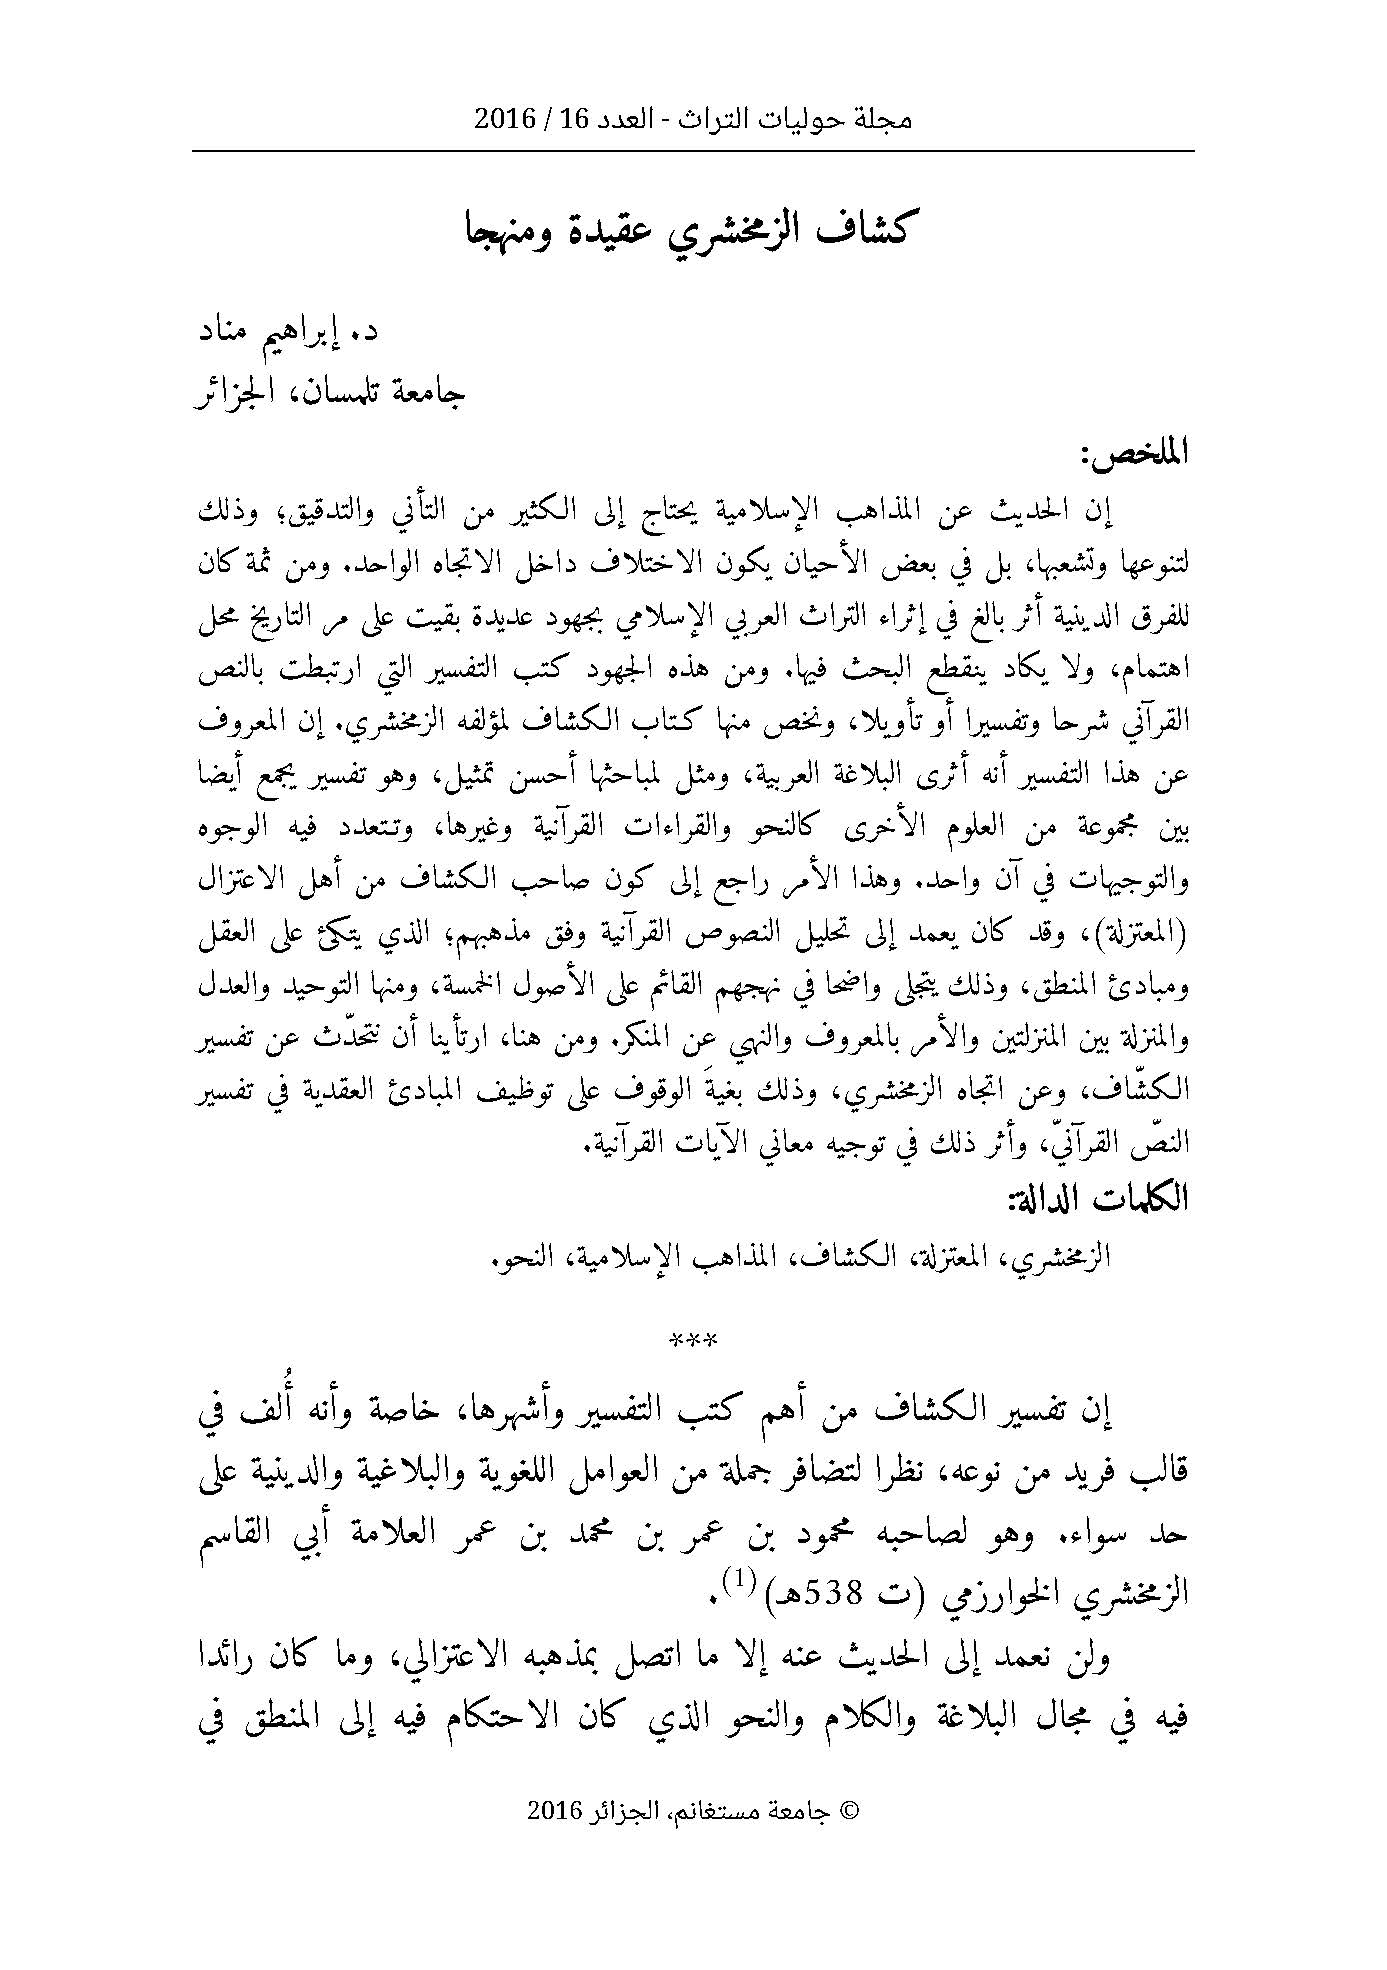 مجلة حوليات التراث - العدد 16 / 2016
كشاف الزمخشري عقيدة ومنهجا
د. إبراهيم مناد
جامعة تلمسان، الجزائر
الملخص:
إن الحديث عن المذاهب الإسلامية يحتاج إلى الكثير من التأني والتدقيق؛ وذلك
لتنوعها وتشعبها، بل في بعض الأحيان يكون الاختلاف داخل الاتجاه الواحد. ومن ثمة كان
للفرق الدينية أثر بالغ في إثراء التراث العربي الإسلامي بجهود عديدة بقيت على مر التاريخ محل
اهتمام، ولا يكاد ينقطع البحث فيها. ومن هذه الجهود كتب التفسير التي ارتبطت بالنص
القرآني شرحا وتفسيرا أو تأويلا، ونخص منها كتاب الكشاف لمؤلفه الزمخشري. إن المعروف
عن هذا التفسير أنه أثرى البلاغة العربية، ومثل لمباحثها أحسن تمثيل، وهو تفسير يجمع أيضا
بين مجموعة من العلوم الأخرى كالنحو والقراءات القرآنية وغيرها، وتتعدد فيه الوجوه
والتوجيهات في آن واحد. وهذا الأمر راجع إلى كون صاحب الكشاف من أهل الاعتزال
(المعتزلة)، وقد كان يعمد إلى تحليل النصوص القرآنية وفق مذهبهم؛ الذي يتكئ على العقل
ومبادئ المنطق، وذلك يتجلى واضحا في نهجهم القائم على الأصول الخمسة، ومنها التوحيد والعدل
والمنزلة بين المنزلتين والأمر بالمعروف والنهي عن المنكر. ومن هنا، ارتأينا أن نتحدّث عن تفسير
الكشّاف، وعن اتجاه الزمخشري، وذلك بغيةَ الوقوف على توظيف المبادئ العقدية في تفسير
النصّ القرآنيّ، وأثر ذلك في توجيه معاني الآيات القرآنية.
الكلمات الدالة:
الزمخشري، المعتزلة، الكشاف، المذاهب الإسلامية، النحو.
***
إن تفسير الكشاف من أهم كتب التفسير وأشهرها، خاصة وأنه أُلف في
قالب فريد من نوعه، نظرا لتضافر جملة من العوامل اللغوية والبلاغية والدينية على
حد سواء. وهو لصاحبه محمود بن عمر بن محمد بن عمر العلامة أبي القاسم
الزمخشري الخوارزمي (ت 538هـ)(1).
ولن نعمد إلى الحديث عنه إلا ما اتصل بمذهبه الاعتزالي، وما كان رائدا
فيه في مجال البلاغة والكلام والنحو الذي كان الاحتكام فيه إلى المنطق في
© جامعة مستغانم، الجزائر 2016